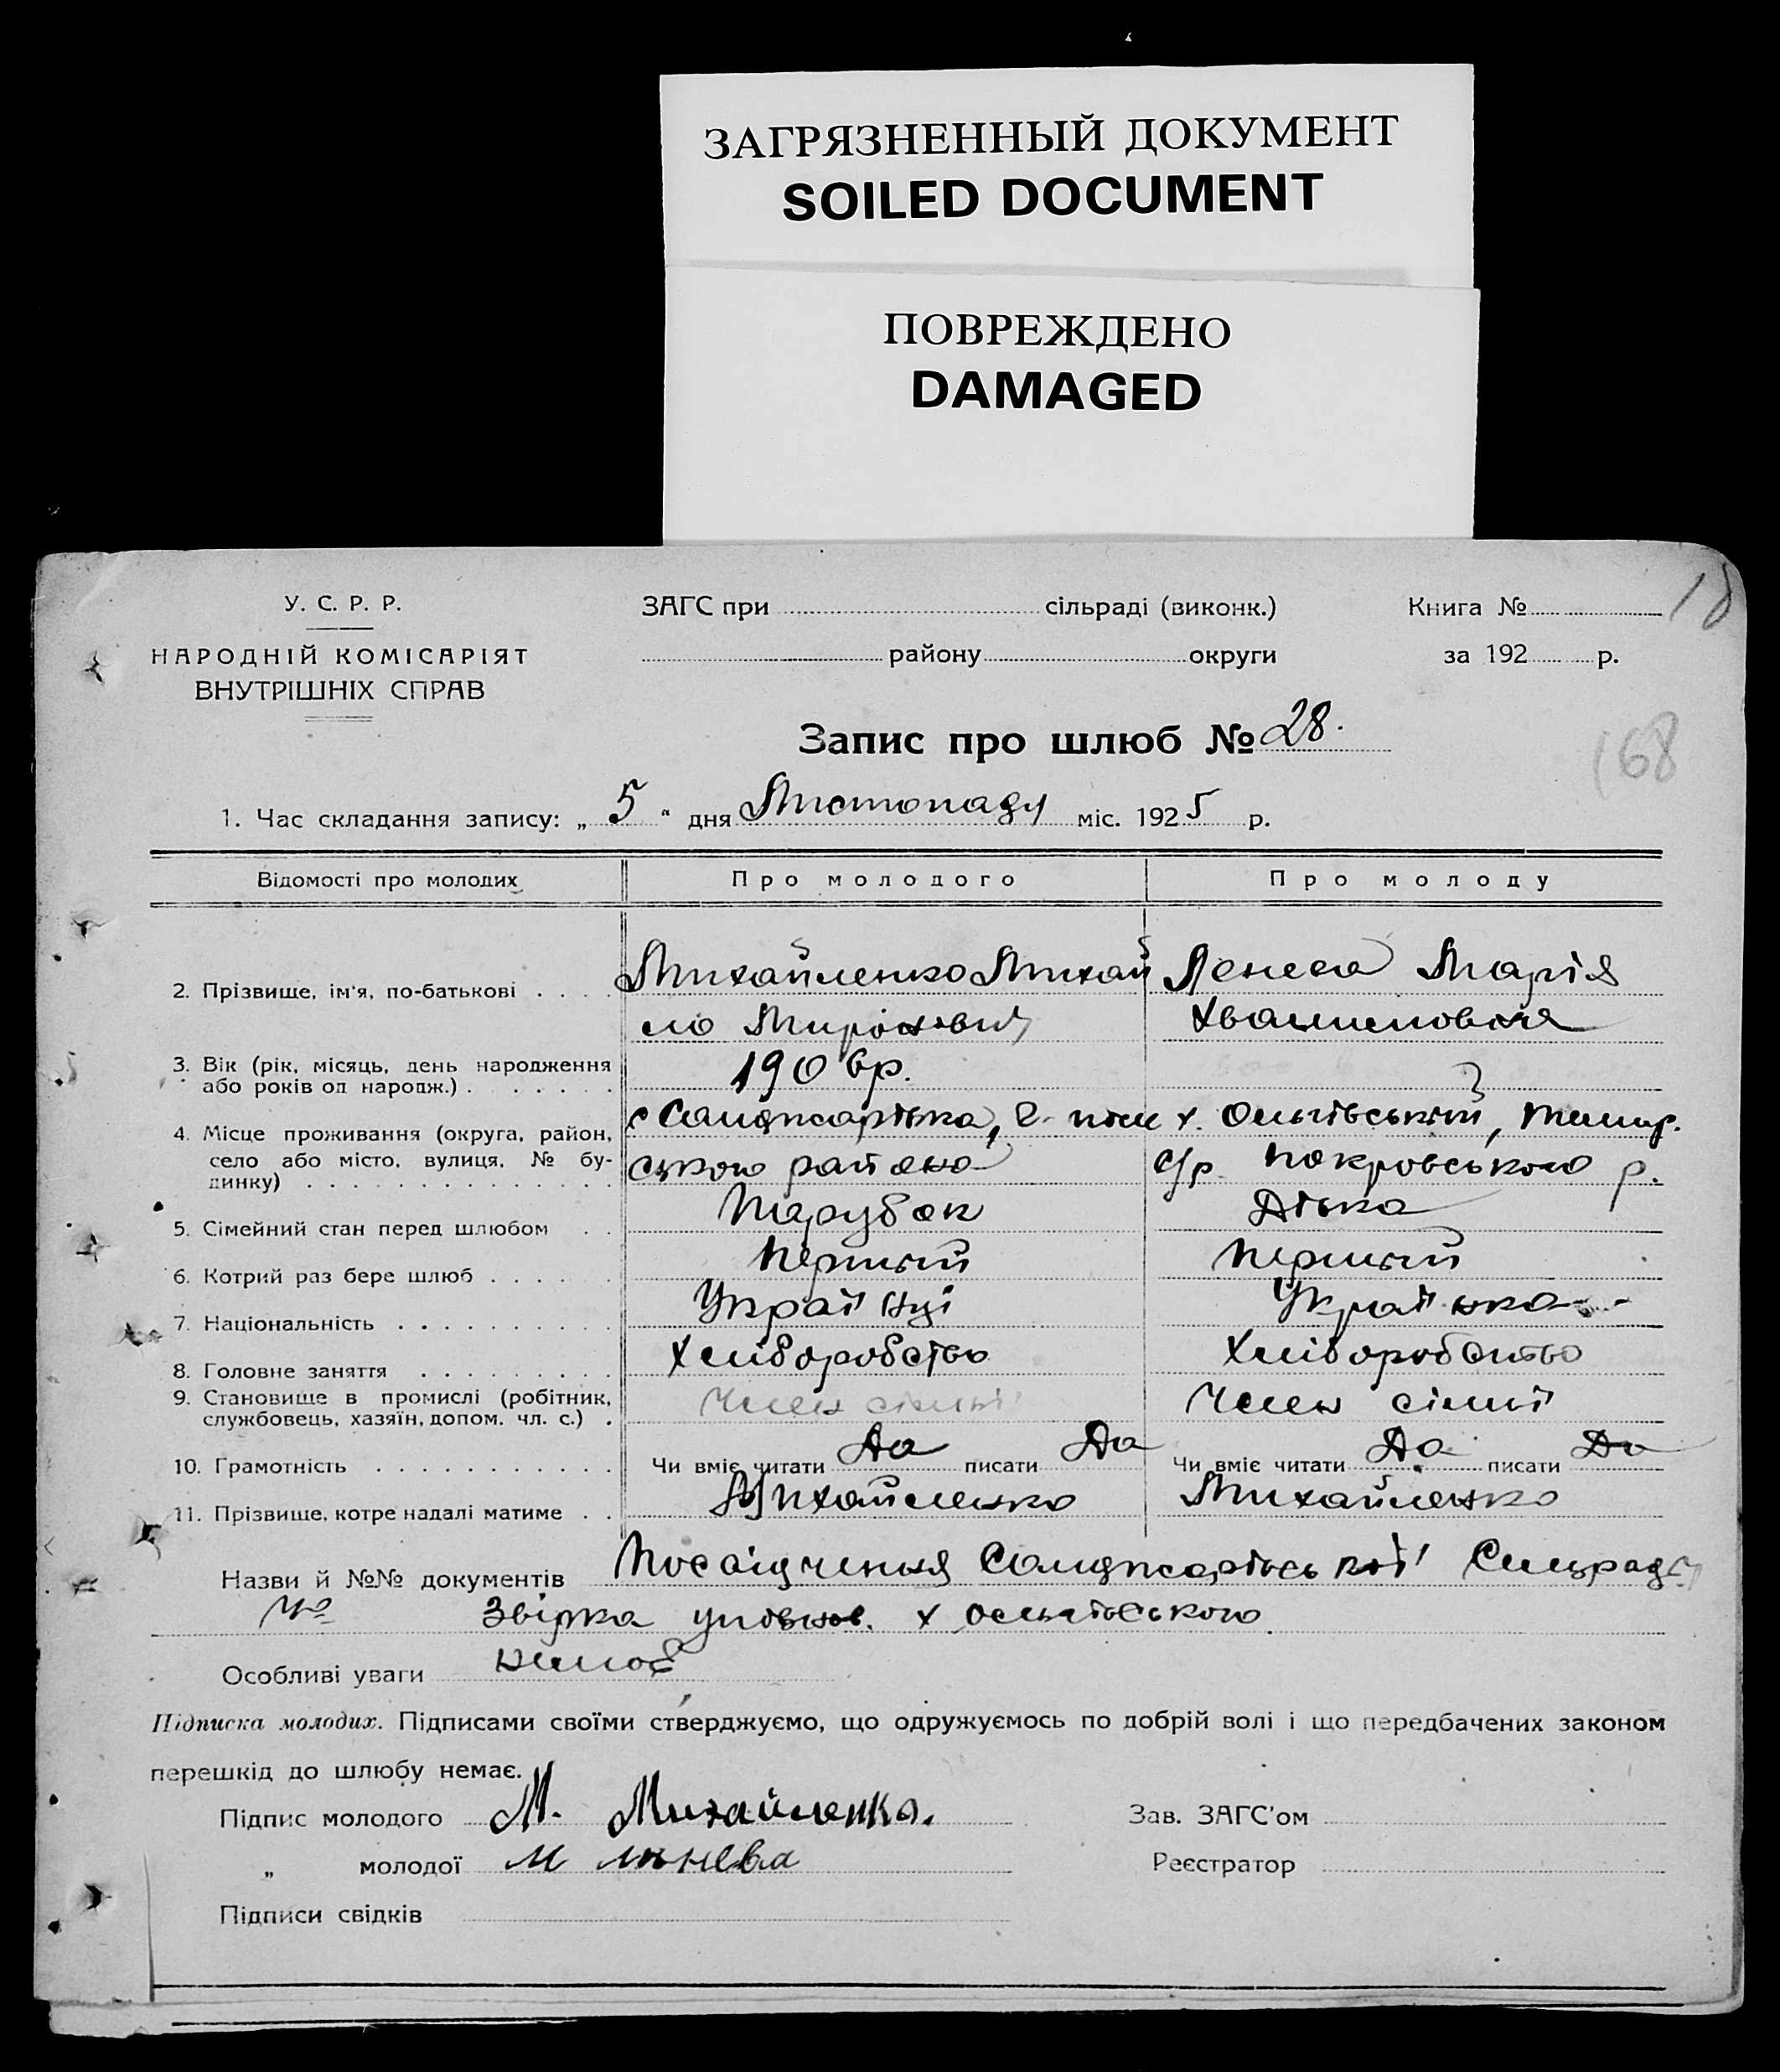 ЗАГРЯЗНЕННЫЙ ДОКУМЕНТ
SOILED DOCUMENT
ПОВРЕЖДЕНО
DAMAGED
18
У. С. Р. Р.
НАРОДНІЙ КОМІСАРІЯТ
ВНУТРІШНІХ СПРАВ
ЗАГС при сільраді (виконк.)
району округи
Книга №
за 192 р.
Запис про шлюб № 28.
168
1. Час складання запису: „ 5 “ дня Листопаду міс. 1925 р.
Відомості про молодих Про молодого Про молоду
2. Прізвище, ім'я, по-батькові Михайленко Михай Марія
ло Миронович
3. Вік (рік, місяць, день народження
або років од народж.) 190 р.
4. Місце проживання (округа, район, х. Ольгівський,
село або місто, вулиця, № бу- ського району с/р. Покровського р.
динку)
5. Сімейний стан перед шлюбом Парубок Дівка
6. Котрий раз бере шлюб Первый Первый
7. Національність Українці Українка
8. Головне заняття Хліборобство Хліборобство
9. Становище в промислі (робітник, Член сімьї Член сімьї
службовець, хазяїн, допом. чл. с.)
10. Грамотність Чи вміє читати Да писати Да Чи вміє читати Да писати Да
11. Прізвище, котре надалі матиме Михайленко Михайленко
Назви й №№ документів Посвідчення Сільради
Звірка уповнов. х Ольгівського
Особливі уваги
Підписка молодих. Підписами своїми стверджуємо, що одружуємось по добрій волі і що передбачених законом
перешкід до шлюбу немає.
Підпис молодого М. Михайленко. Зав. ЗАГС'ом
„ молодої М Реєстратор
Підписи свідків